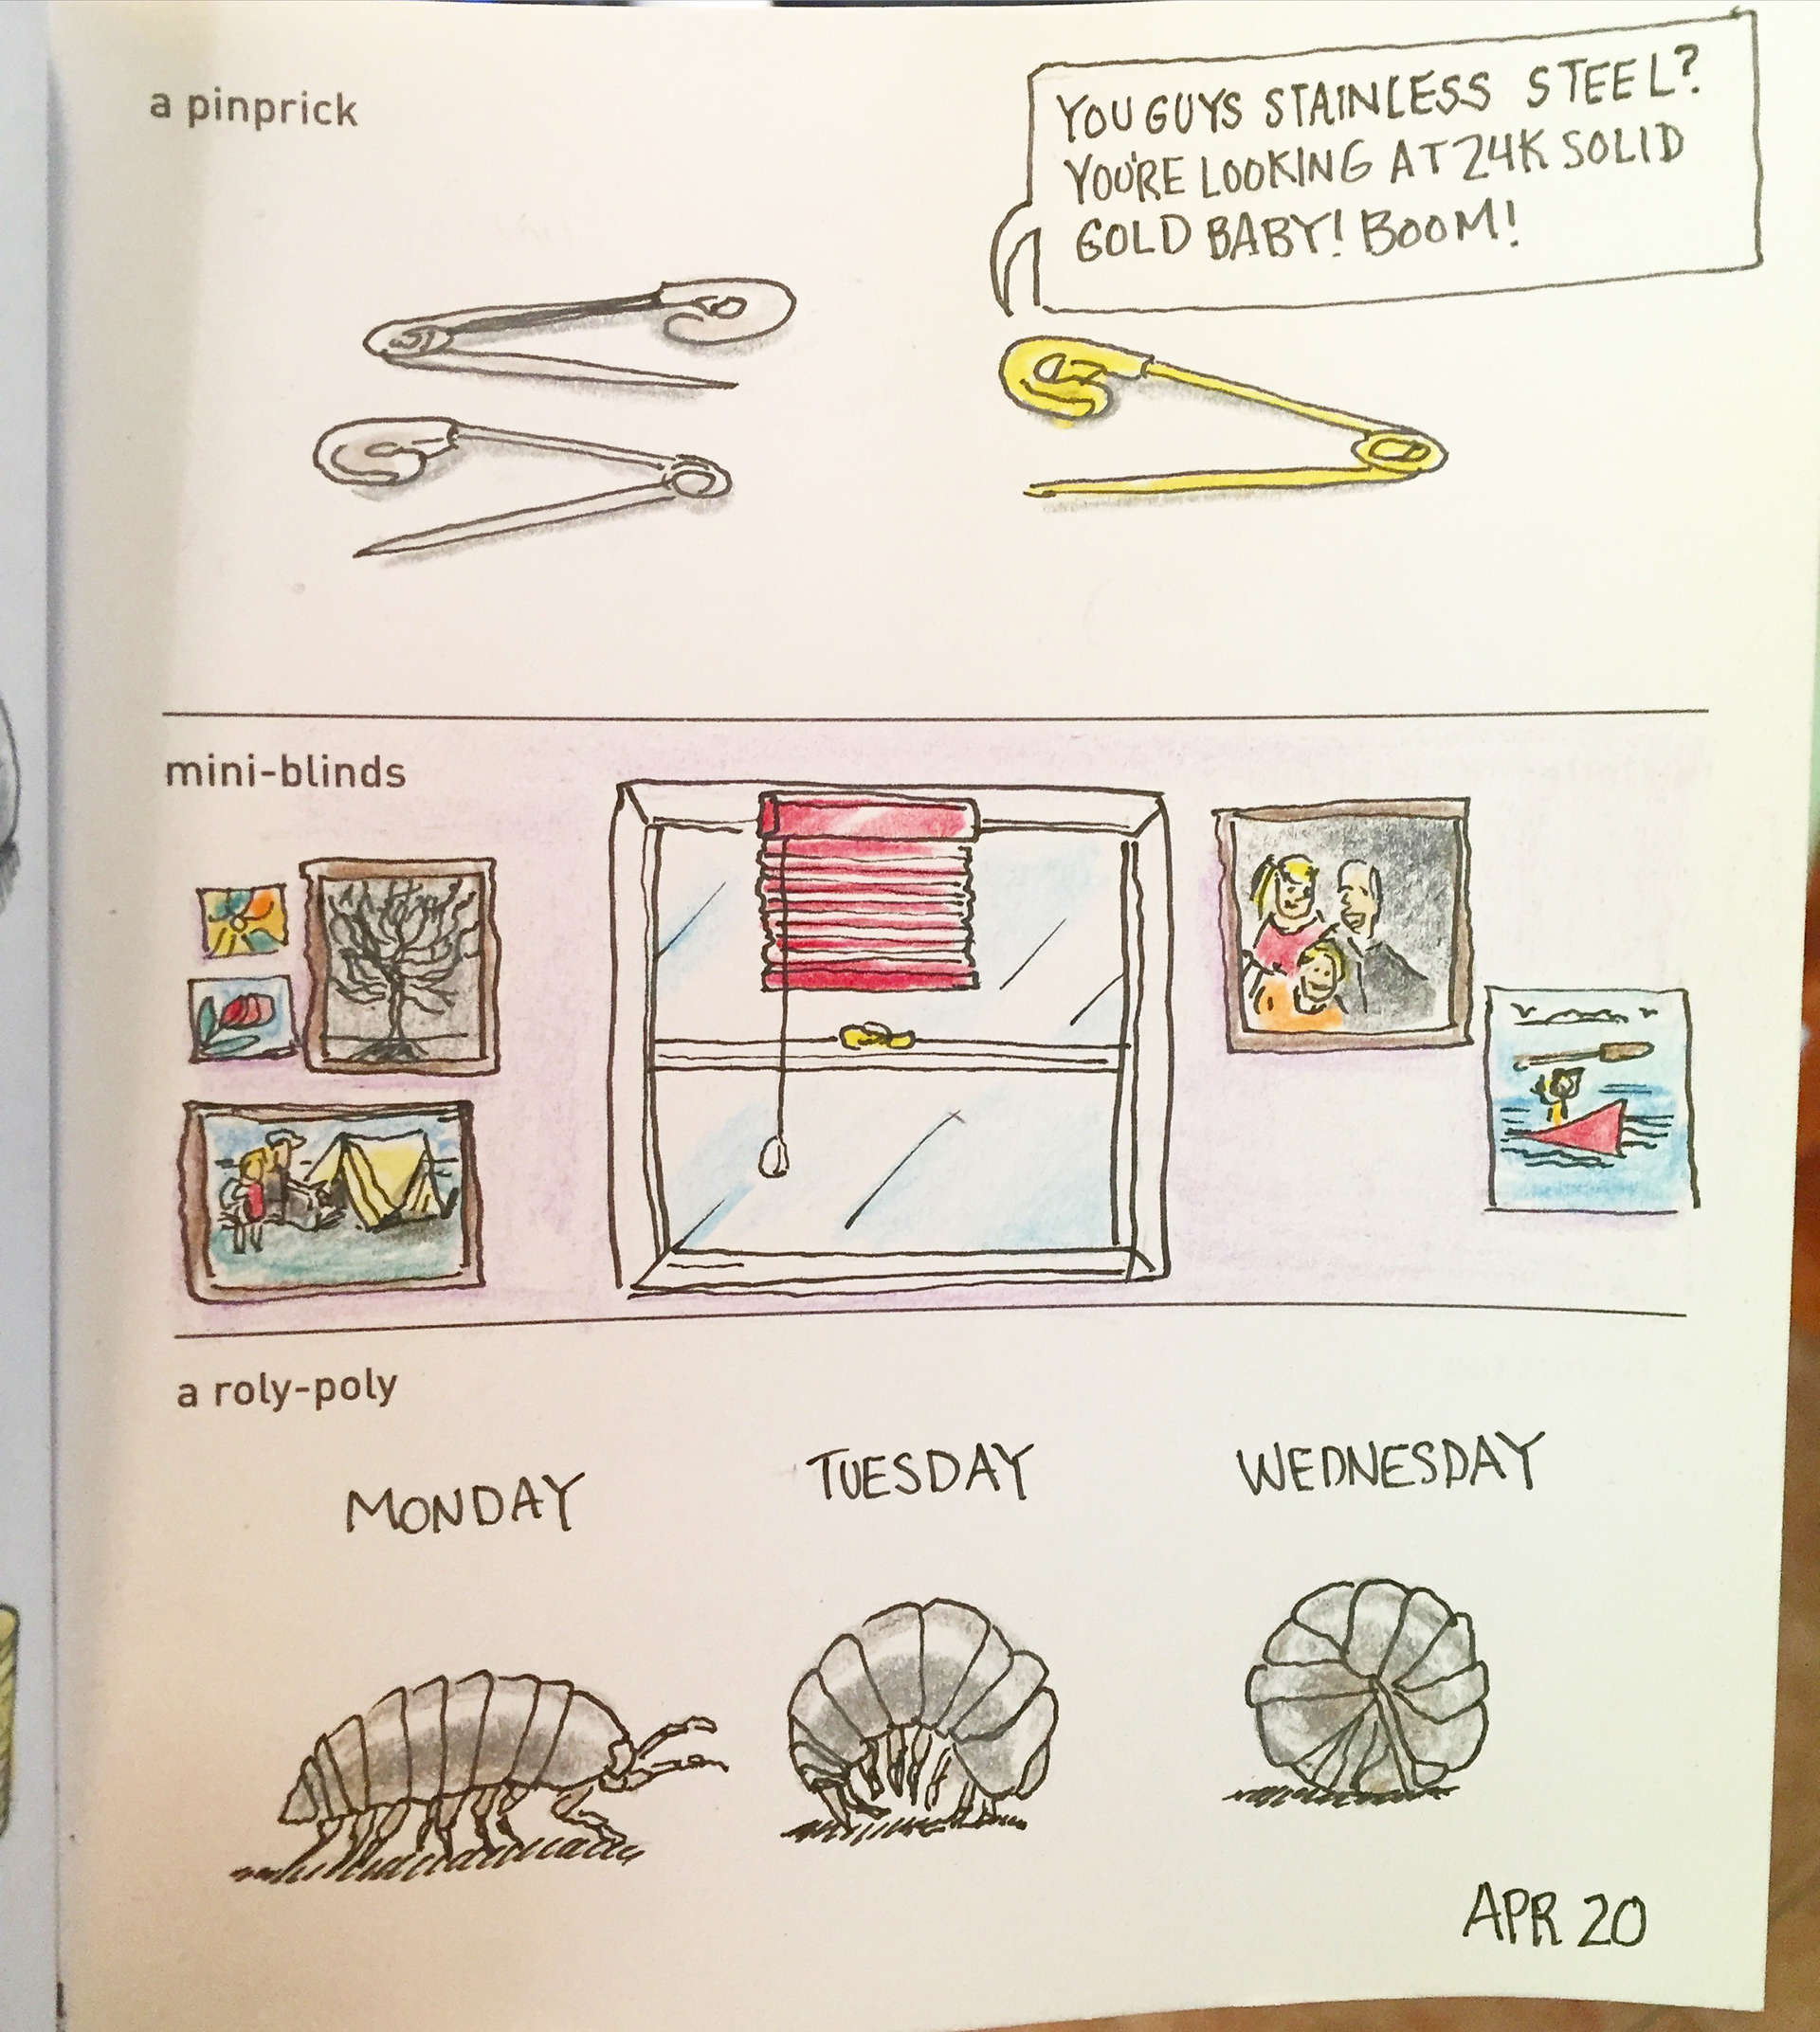 a pinprick
YOU GUYS STAINLESS STEEL?
YOU'RE LOOKING AT 24K SOLID
GOLD BABY! BOOM!
mini-blinds
a roly-poly
MONDAY
TUESDAY
WEDNESDAY
APR 20